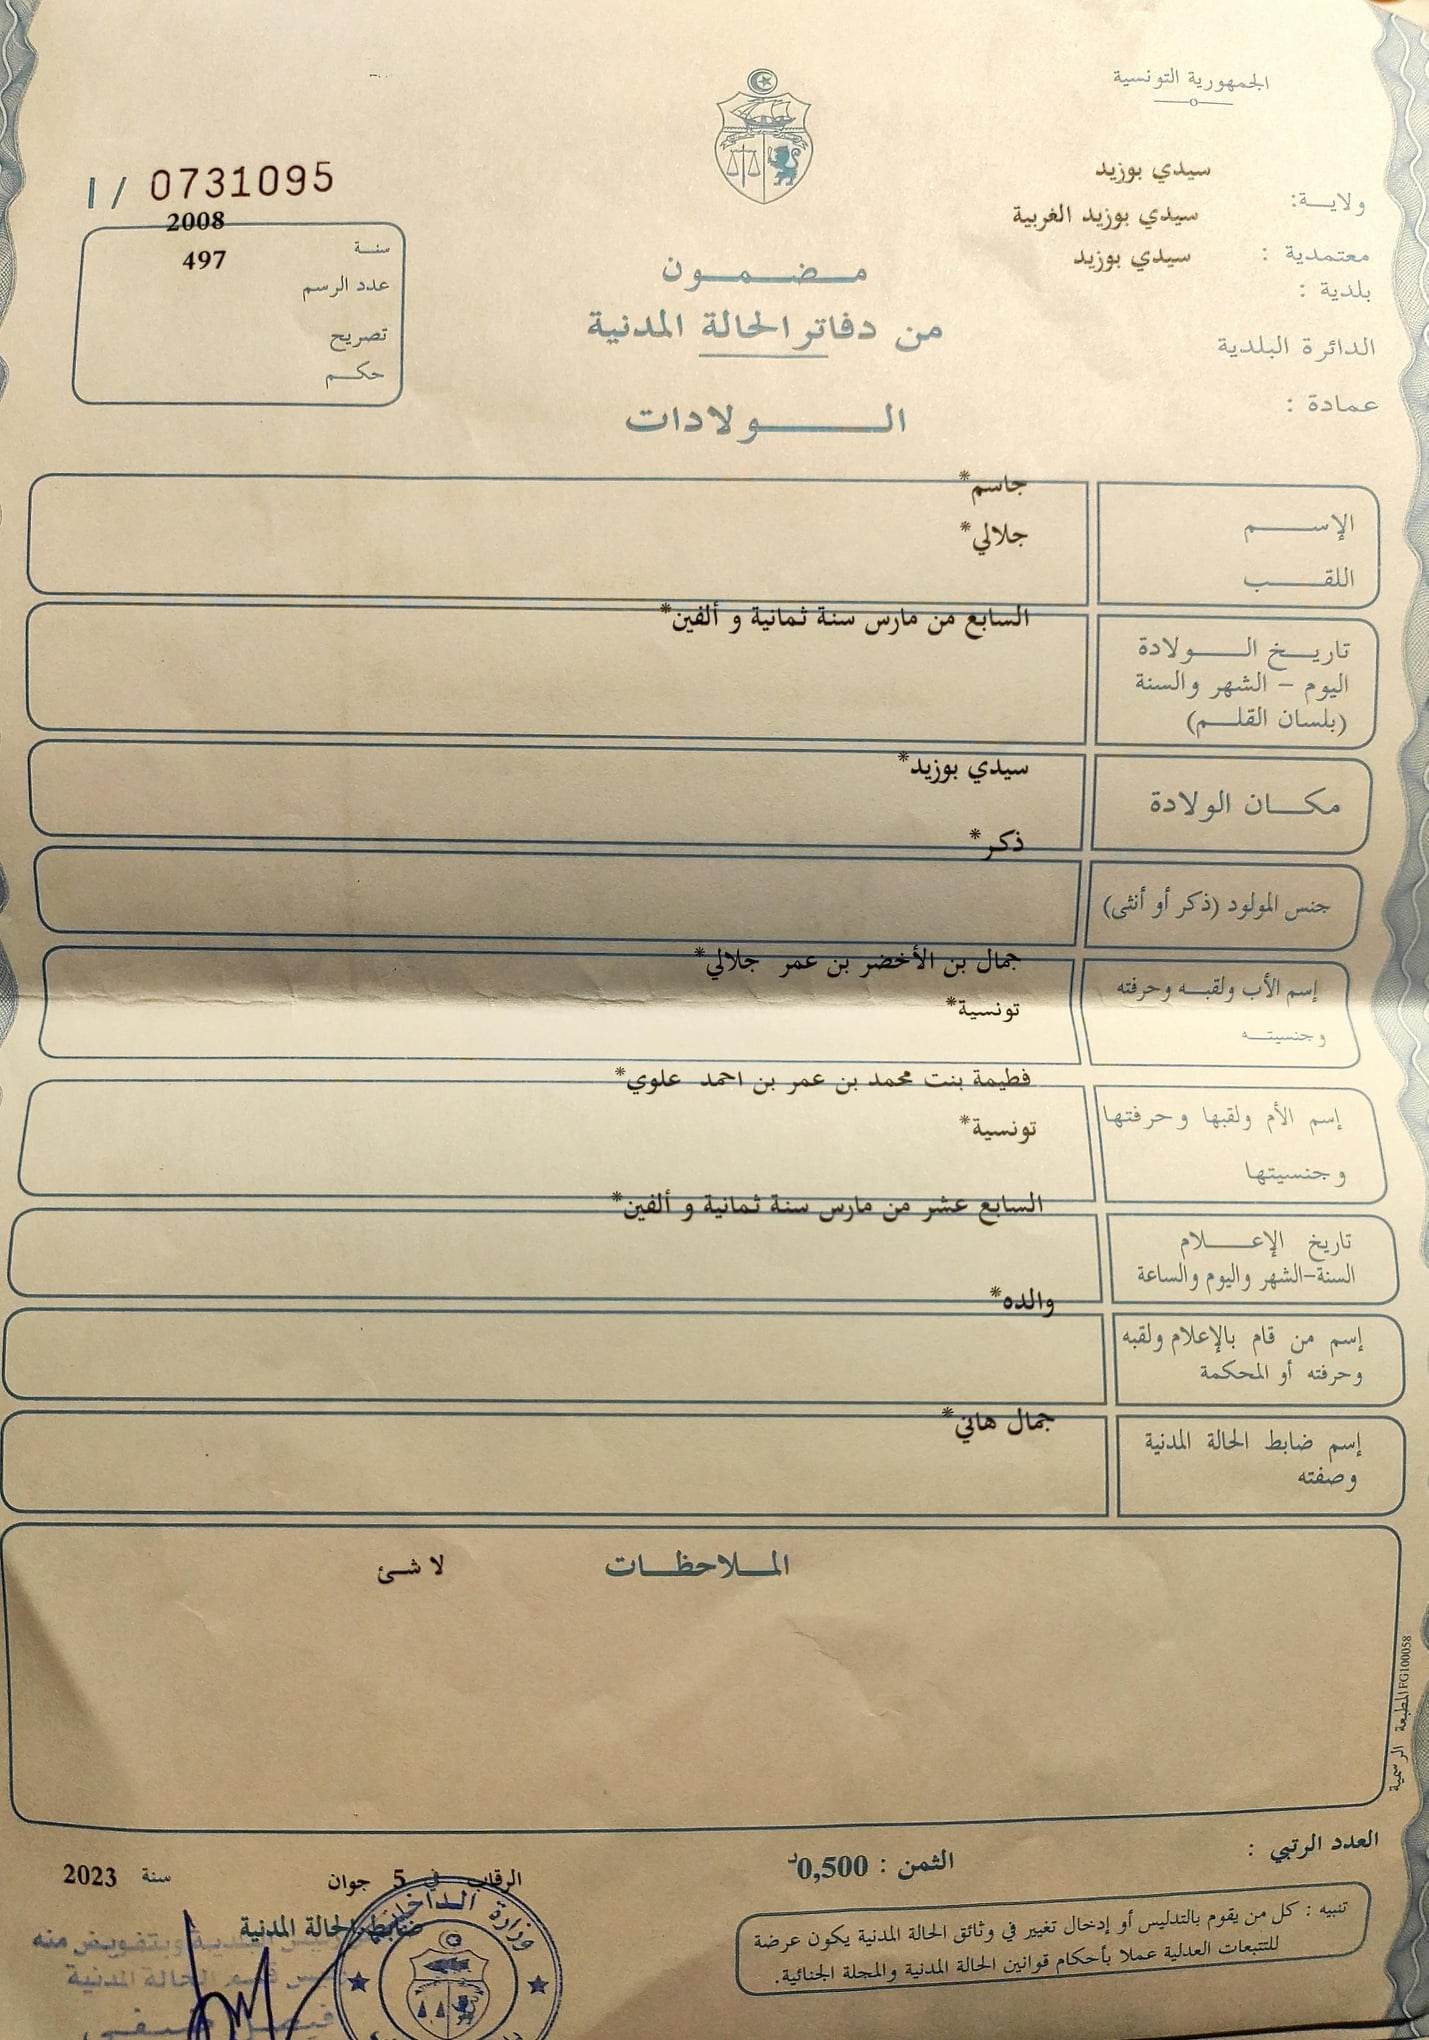 الجمهورية التونسية
ولاية: سيدي بوزيد
معتمدية : سيدي بوزيد الغربية
بلدية : سيدي بوزيد
الدائرة البلدية
عمادة :
I / 0731095
سنة 2008
عدد الرسم 497
تصريح
حكم
مضمون
من دفاتر الحالة المدنية
الولادات
الإسم جاسم*
اللقب جلالي*
تاريخ الولادة السابع من مارس سنة ثمانية و ألفين*
اليوم - الشهر والسنة
(بلسان القلم)
مكان الولادة سيدي بوزيد*
جنس المولود (ذكر أو أنثى) ذكر*
إسم الأب ولقبه وحرفته جمال بن الأخضر بن عمر جلالي*
وجنسيته تونسية*
إسم الأم ولقبها وحرفتها فطيمة بنت محمد بن عمر بن احمد علوي*
وجنسيتها تونسية*
تاريخ الإعلام السابع عشر من مارس سنة ثمانية و ألفين*
السنة-الشهر واليوم والساعة
إسم من قام بالإعلام ولقبه والده*
وحرفته أو المحكمة
إسم ضابط الحالة المدنية جمال هاني*
وصفته
الملاحظات لا شئ
المطبعة الرسمية FG100058
العدد الرتبي :
الثمن : 0,500د
تنبيه : كل من يقوم بالتدليس أو إدخال تغيير في وثائق الحالة المدنية يكون عرضة
للتتبعات العدلية عملا بأحكام قوانين الحالة المدنية والمجلة الجنائية.
الرقاب في 5 جوان سنة 2023
ضابط الحالة المدنية
وبتفويض منه
قسم الحالة المدنية
وزارة الداخلية